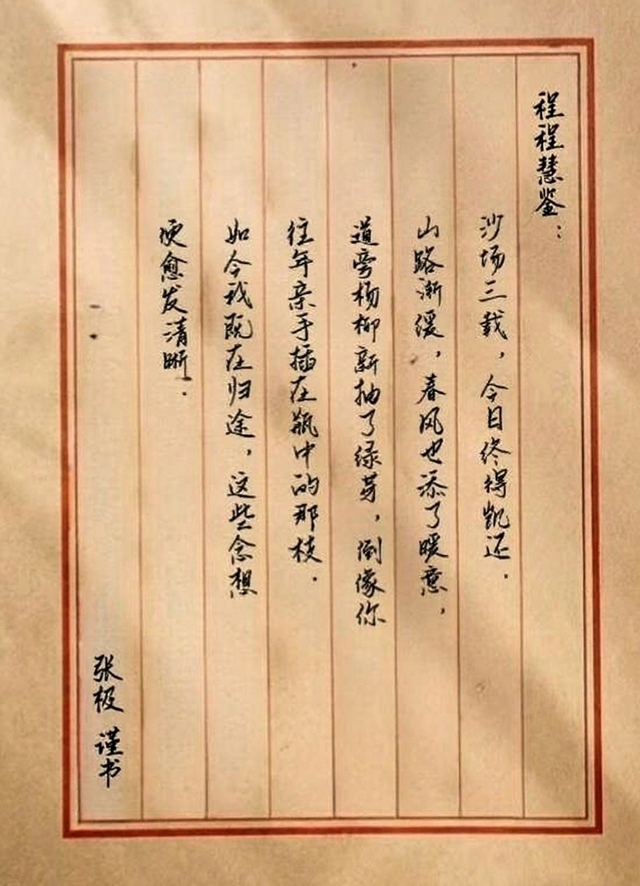 程程慧鉴：
沙场三载，今日终得凯还.
山路渐缓，春风也添了暖意，
道旁杨柳新抽了绿芽，倒像你
往年亲手插在瓶中的那枝.
如今我既在归途，这些念想
便愈发清晰.
张极 谨书